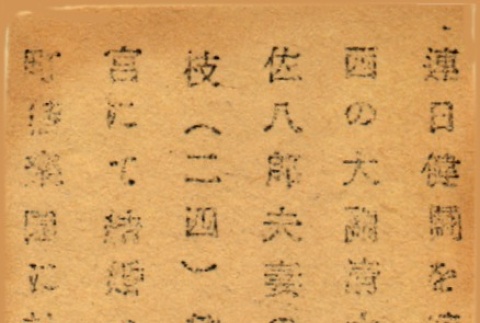 連日健闘を
西の大関清
佐八郎夫妻の
枝（二四）
宮にて結婚
町偕楽園に